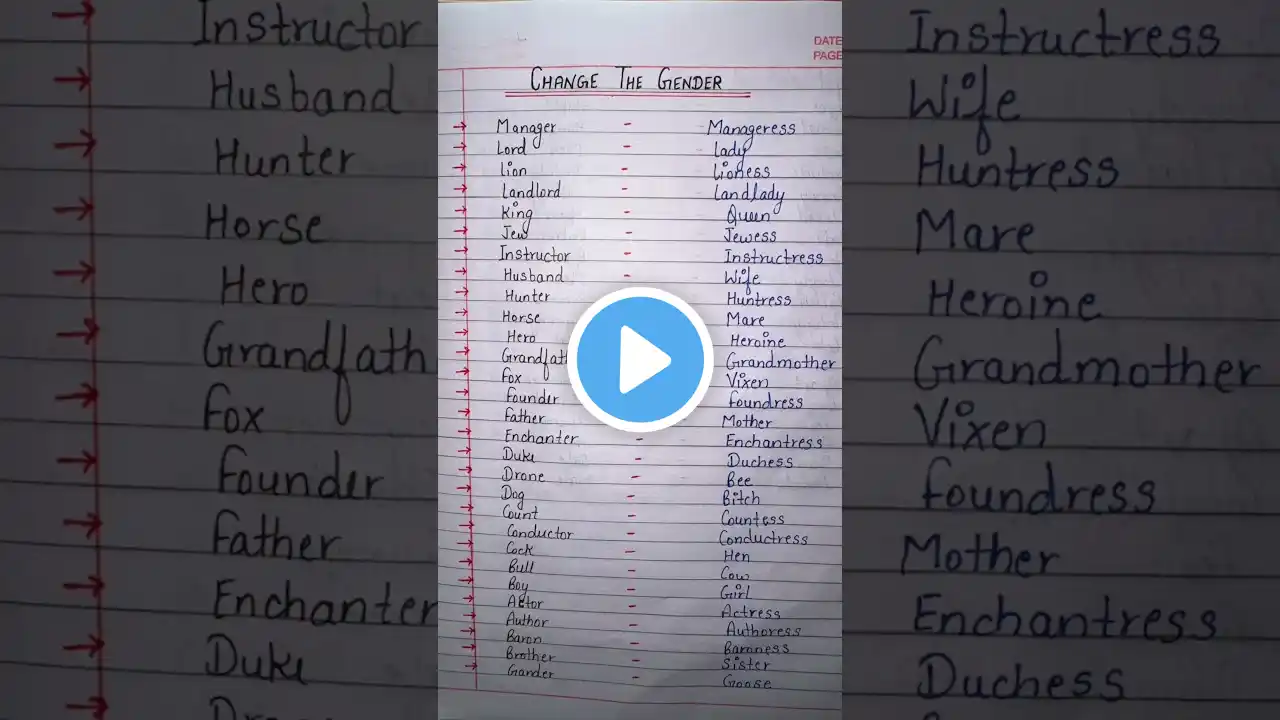 Instructor
Husband
Hunter
Horse
Hero
Grandfath
Fox
Founder
Father
Enchanter
Duke
DATE
PAGE
CHANGE THE GENDER
→ Manager - Manageress
→ Lord - Lady
→ Lion - Lioness
→ Landlord - Landlady
→ King - Queen
→ Jew - Jewess
→ Instructor - Instructress
→ Husband - Wife
→ Hunter - Huntress
→ Horse - Mare
→ Hero - Heroine
→ Grandfat Grandmother
→ Fox Vixen
→ Founder Foundress
→ Father Mother
→ Enchanter - Enchantress
→ Duke - Duchess
→ Drone - Bee
→ Dog - Bitch
→ Count - Countess
→ Conductor - Conductress
→ Cock - Hen
→ Bull - Cow
→ Boy - Girl
→ Actor - Actress
→ Author - Authoress
→ Baron - Baroness
→ Brother - Sister
→ Gander - Goose
Instructress
Wife
Huntress
Mare
Heroine
Grandmother
Vixen
Foundress
Mother
Enchantress
Duchess